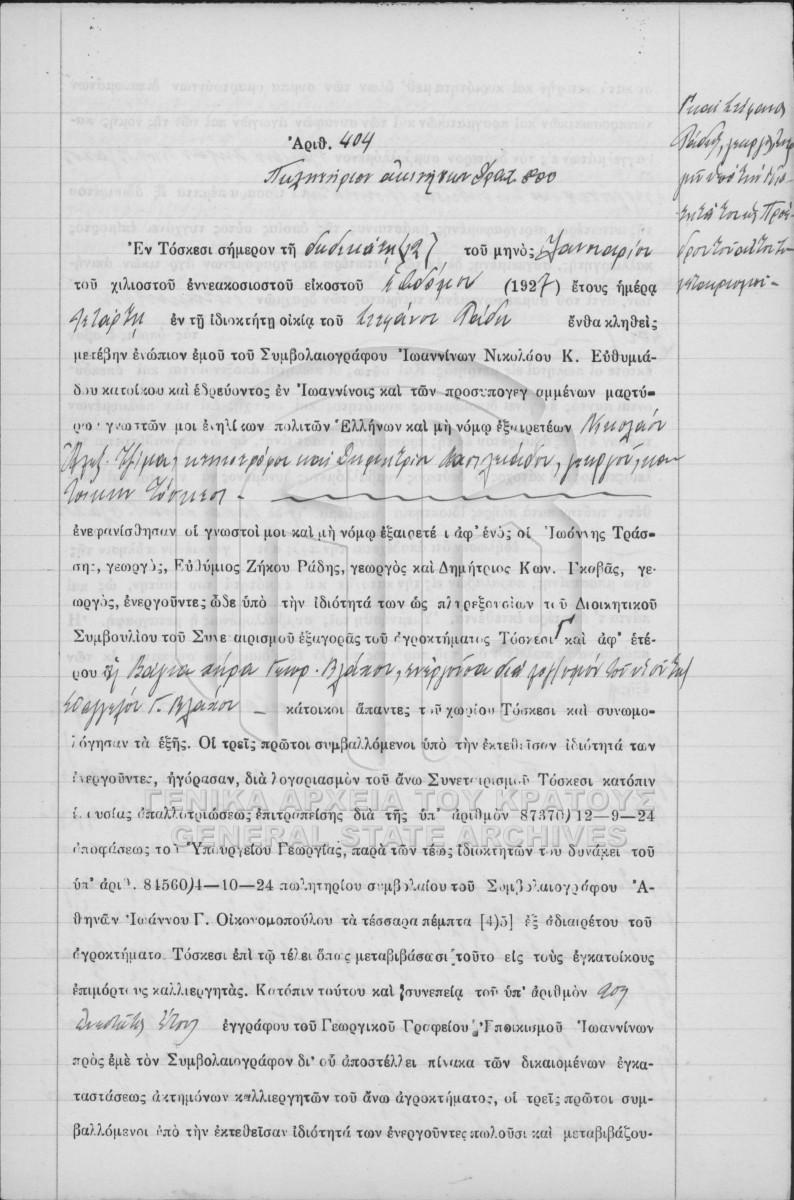 Ἀριθ. 404
Πωλητήριον ἀκινήτων δραχ. 800
Ἐν Τόσκεσι σήμερον τῇ δωδεκάτῃ (12) τοῦ μηνὸς Ἰανουαρίου
τοῦ χιλιοστοῦ ἐννεακοσιοστοῦ εἰκοστοῦ ἑβδόμου (1927) ἔτους ἡμέρᾳ
Τετάρτῃ ἐν τῇ ἰδιοκτήτῳ οἰκίᾳ τοῦ Στεφάνου Ράδη ἔνθα κληθεὶς
μετέβην ἐνώπιον ἐμοῦ τοῦ Συμβολαιογράφου Ἰωαννίνων Νικολάου Κ. Εὐθυμιά-
δου κατοίκου καὶ ἑδρεύοντος ἐν Ἰωαννίνοις καὶ τῶν προσυπογεγραμμένων μαρτύ-
ρων γνωστῶν μοι ἐνηλίκων πολιτῶν Ἑλλήνων καὶ μὴ νόμῳ ἐξαιρετέων Νικολάου
Ἀλεξ. Τζίμα, κτηνοτρόφου καὶ Δημητρίου Βασιλειάδου, γεωργοῦ, κατοίκων Τόσκεσι –
ἐνεφανίσθησαν οἱ γνωστοί μοι καὶ μὴ νόμῳ ἐξαιρετέοι ἀφ' ἑνὸς οἱ Ἰωάννης Τράσ-
σης, γεωργός, Εὐθύμιος Ζήκου Ράδης, γεωργὸς καὶ Δημήτριος Κων. Γκοβᾶς, γε-
ωργός, ἐνεργοῦντες ὧδε ὑπὸ τὴν ἰδιότητά των ὡς πληρεξουσίων τοῦ Διοικητικοῦ
Συμβουλίου τοῦ Συνεταιρισμοῦ ἐξαγορᾶς τοῦ ἀγροκτήματος Τόσκεσι καὶ ἀφ' ἑτέ-
ρου ἡ Βάγια χήρα Γεωρ. Βλάχου, ἐνεργοῦσα διὰ λογ/σμὸν τοῦ υἱοῦ της
Εὐαγγέλου Γ. Βλάχου – κάτοικοι ἅπαντες τοῦ χωρίου Τόσκεσι καὶ συνωμο-
λόγησαν τὰ ἑξῆς. Οἱ τρεῖς πρῶτοι συμβαλλόμενοι ὑπὸ τὴν ἐκτεθεῖσαν ἰδιότητά των
ἐνεργοῦντες, ἠγόρασαν, διὰ λογαριασμὸν τοῦ ἄνω Συνεταιρισμοῦ Τόσκεσι κατόπιν
ἑκουσίας ἀπαλλοτριώσεως ἐπιτραπείσης διὰ τῆς ὑπ' ἀριθμὸν 87370)12—9—24
ἀποφάσεως τοῦ Ὑπουργείου Γεωργίας, παρὰ τῶν τέως ἰδιοκτητῶν του δυνάμει τοῦ
ὑπ' ἀριθ. 84560)4—10—24 πωλητηρίου συμβολαίου τοῦ Συμβολαιογράφου Ἀ-
θηνῶν Ἰωάννου Γ. Οἰκονομοπούλου τὰ τέσσαρα πέμπτα [4)5] ἐξ ἀδιαιρέτου τοῦ
ἀγροκτήματος Τόσκεσι ἐπὶ τῷ τέλει ὅπως μεταβιβάσωσι τοῦτο εἰς τοὺς ἐγκατοίκους
ἐπιμόρτους καλλιεργητάς. Κατόπιν τούτου καὶ συνεπείᾳ τοῦ ὑπ' ἀριθμὸν
ἐγγράφου τοῦ Γεωργικοῦ Γραφείου Ἐποικισμοῦ Ἰωαννίνων
πρὸς ἐμὲ τὸν Συμβολαιογράφον δι' οὗ ἀποστέλλει πίνακα τῶν δικαιουμένων ἐγκα-
ταστάσεως ἀκτημόνων καλλιεργητῶν τοῦ ἄνω ἀγροκτήματος, οἱ τρεῖς πρῶτοι συμ-
βαλλόμενοι ὑπὸ τὴν ἐκτεθεῖσαν ἰδιότητά των ἐνεργοῦντες πωλοῦσι καὶ μεταβιβάζου-
Γ καὶ Στέφανος
Ράδης, γεωργός,
ὑπὸ τὴν ἰδιό-
τητά του ὡς Προέ-
δρου τοῦ αὐτοῦ Συ-
νεταιρισμοῦ –
ΓΕΝΙΚΑ ΑΡΧΕΙΑ ΤΟΥ ΚΡΑΤΟΥΣ
GENERAL STATE ARCHIVES